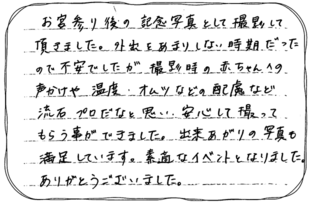 お宮参り後の記念写真として撮影して
頂きました。外出をあまりしない時期だった
ので不安でしたが撮影時の赤ちゃんへの
声かけや温度・オムツなどの配慮など
流石プロだなと思い、安心して撮って
もらう事ができました。出来あがりの写真も
満足しています。素適なイベントとなりました。
ありがとうございました。